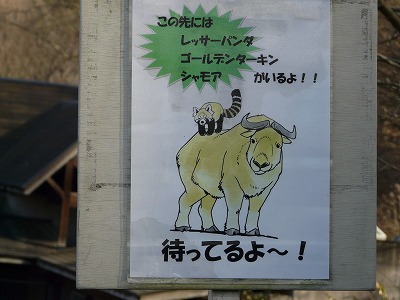 この先には
レッサーパンダ
ゴールデンターキン
シャモア がいるよ！！
待ってるよ～！